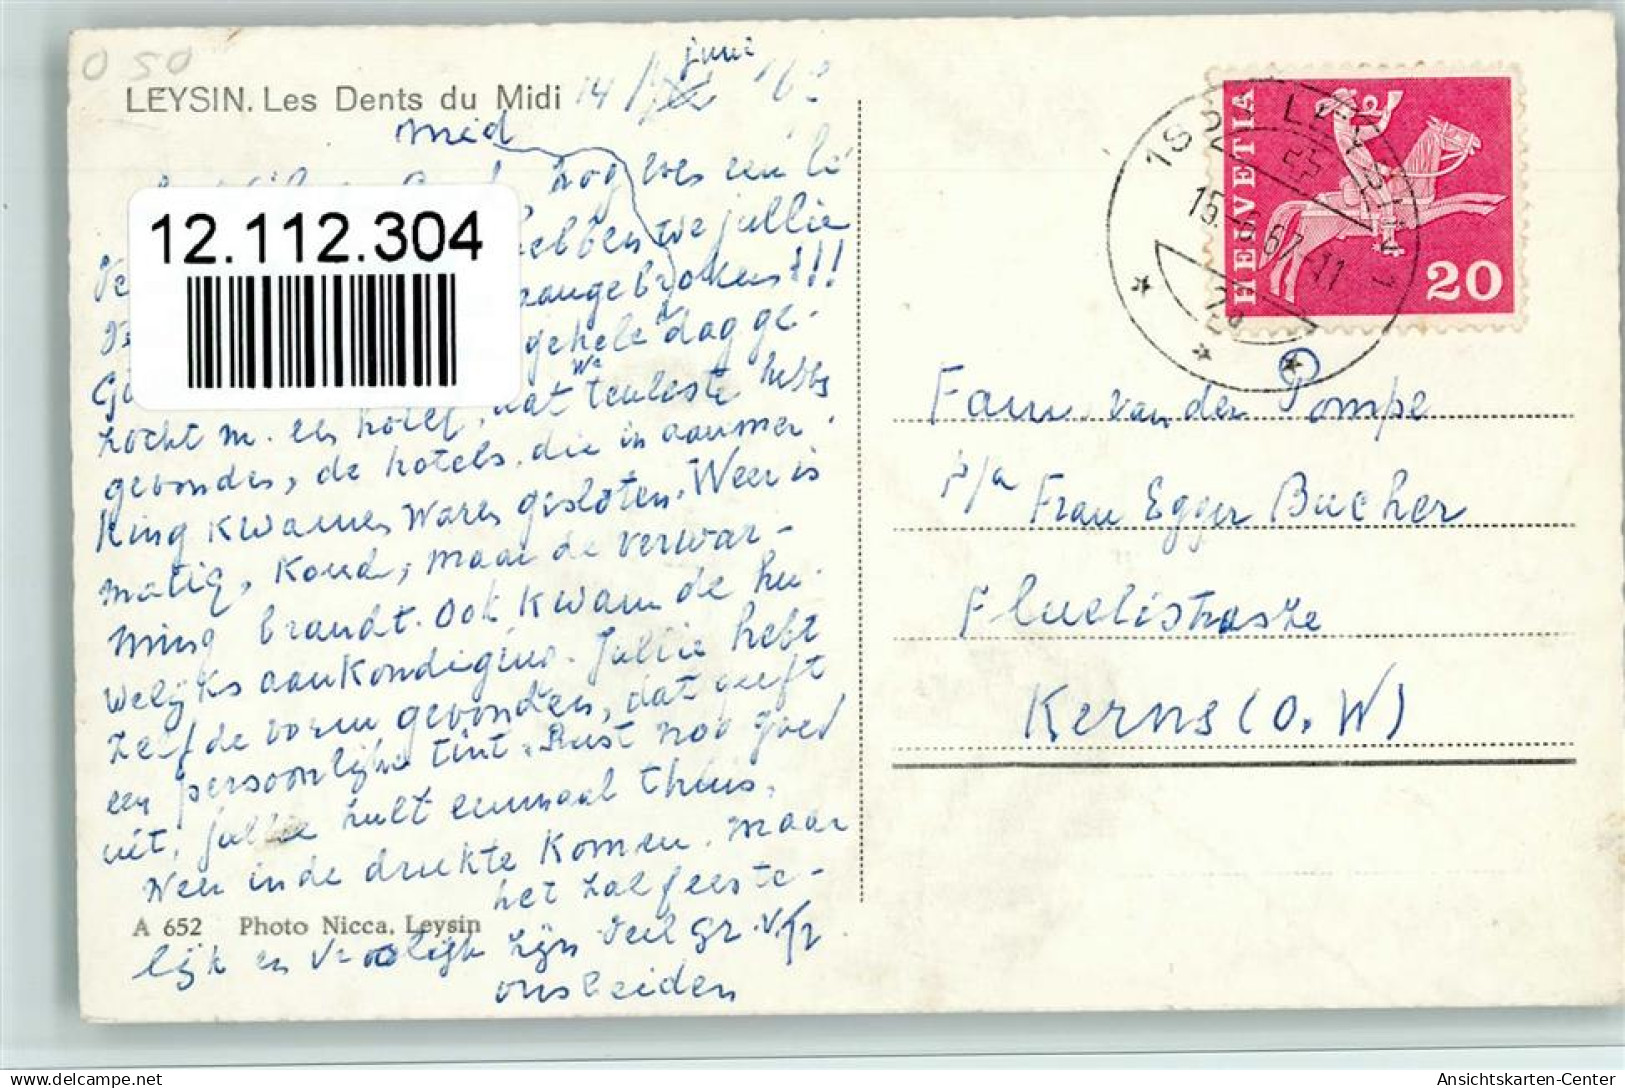 O 50
LEYSIN. Les Dents du Midi 14 juni
Mid
nog wes een
hebben we jullie
aangebroken!!!
gehele dag ge-
zocht n. een hotel, dat we tenleste hebb
gevonden, de hotels, die in aanmer
king kwamen waren gesloten. Weer is
matig, koud, maar de verwar-
ming brandt. Ook kwam de hu-
welijks aankondiging. Jullie hebt
zelf de vorm gevonden, dat geeft
een persoonlijke tint. Rust nog goed
uit, jullie zult eenmaal thuis,
weer in de drukte komen. Maar
het zal feeste-
A 652 Photo Nicca, Leysin
lijk en vrolijk zijn Veel gr. v.
ons beiden
12.112.304
HELVETIA
20
LEYSIN 1
15.-6.67-11
Fam. van der Pompe
p/a Frau Egger Bucher
Fluelistrasze
Kerns (O.W)
www.delcampe.net
tpk22
Ansichtskarten-Center